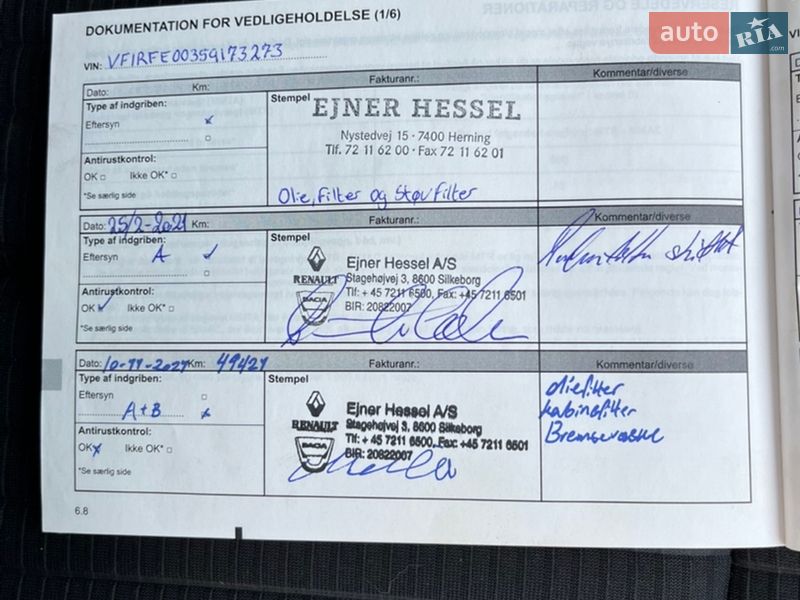 DOKUMENTATION FOR VEDLIGEHOLDELSE (1/6)
RESERVEDELE OG REPARATIONER
auto RIA .com
VIN: VF1RFE00359173273
Dato: Km: Fakturanr.: Kommentar/diverse
Type af indgriben:
Eftersyn
Antirustkontrol:
OK Ikke OK*
*Se særlig side
Stempel
EJNER HESSEL
Nystedvej 15 · 7400 Herning
Tlf. 72 11 62 00 · Fax 72 11 62 01
Olie, Filter og Støvfilter
Dato: 25/2-2021 Km: Fakturanr.: Kommentar/diverse
Type af indgriben:
Eftersyn A
Antirustkontrol:
OK Ikke OK*
*Se særlig side
Stempel
RENAULT
DACIA
Ejner Hessel A/S
Stagehøjvej 3, 8600 Silkeborg
Tlf: + 45 7211 6500, Fax: +45 7211 6501
BIR: 20822007
Dato: 10-11-2021 Km: 49421 Fakturanr.: Kommentar/diverse
Type af indgriben:
Eftersyn
A+B
Antirustkontrol:
OK Ikke OK*
*Se særlig side
Stempel
RENAULT
DACIA
Ejner Hessel A/S
Stagehøjvej 3, 8600 Silkeborg
Tlf: + 45 7211 6500, Fax: +45 7211 6501
BIR: 20822007
oliefilter
kabinefilter
Bremsevæske
6.8